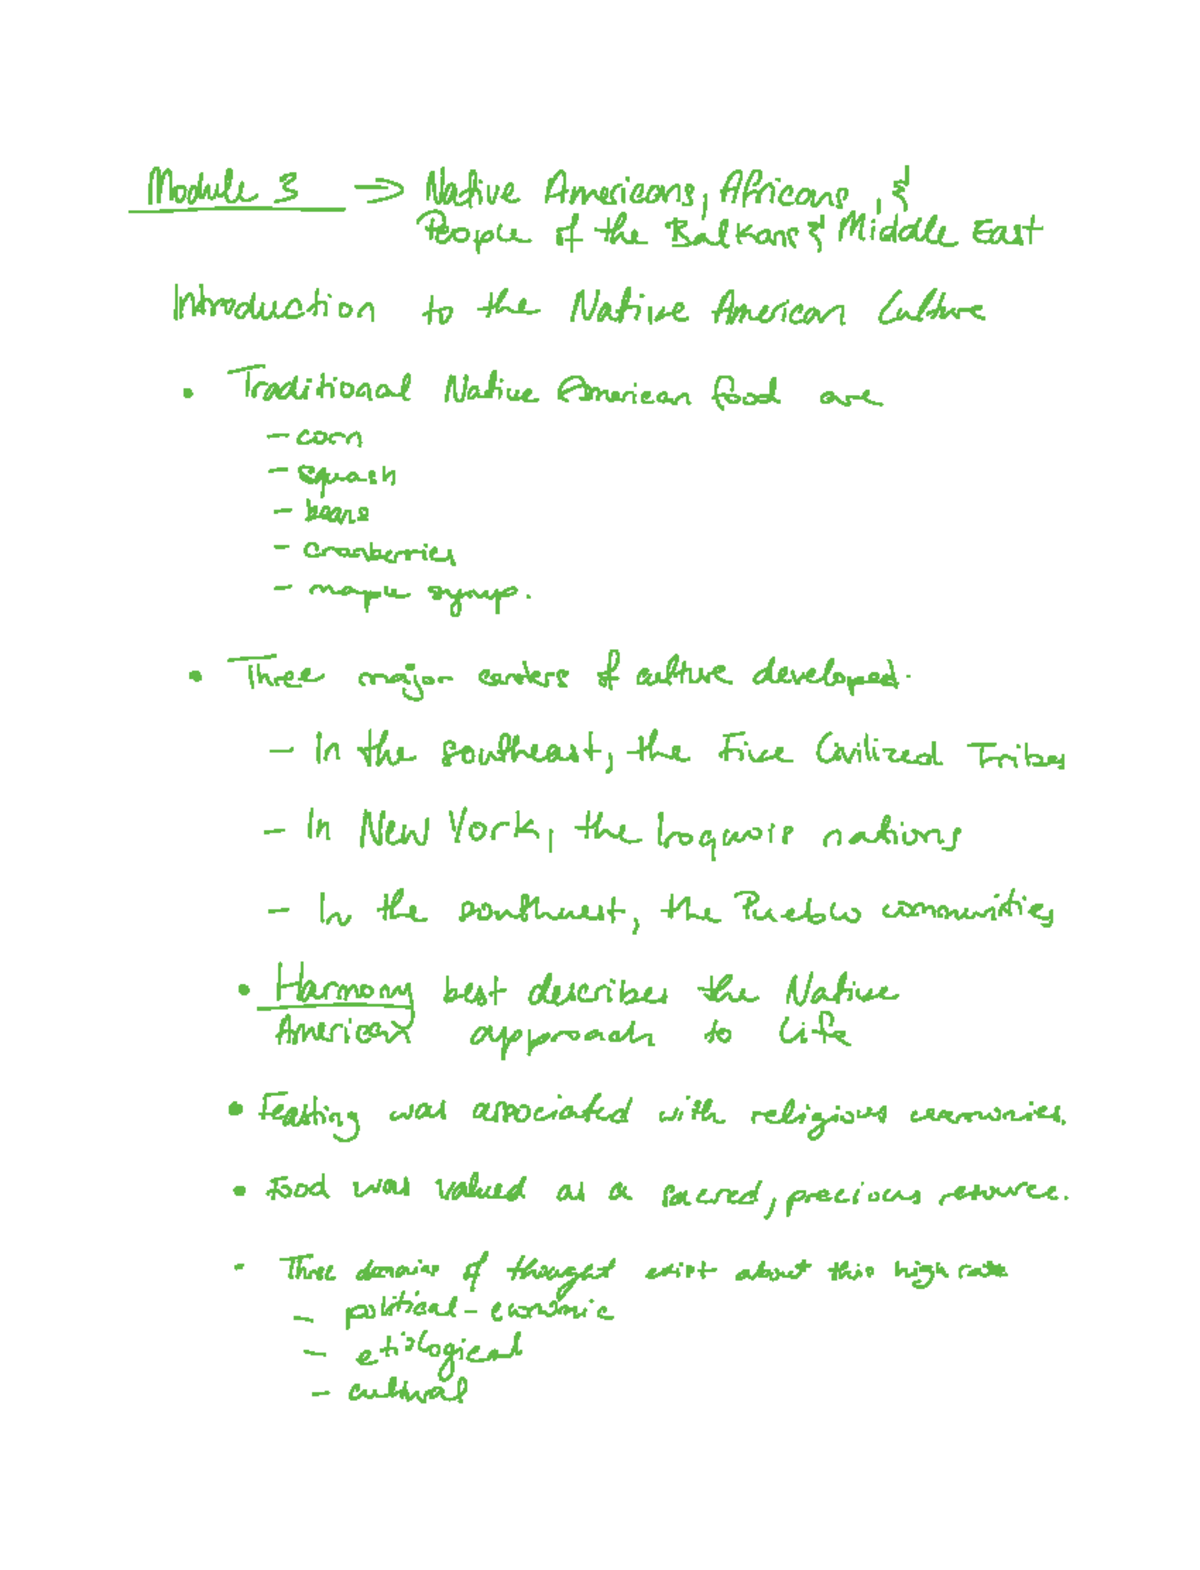 Module 3 → Native Americans, Africans, &
People of the Balkans & Middle East
Introduction to the Native American Culture
• Traditional Native American food are
- corn
- squash
- beans
- cranberries
- maple syrup.
• Three major centers of culture developed.
- In the southeast, the Five Civilized Tribes
- In New York, the Iroquois nations
- In the southwest, the Pueblo communities
• Harmony best describes the Native
American approach to life
• Feasting was associated with religious ceremonies.
• Food was valued as a sacred, precious resource.
• Three domains of thought exist about this high rate
- political-economic
- etiological
- cultural